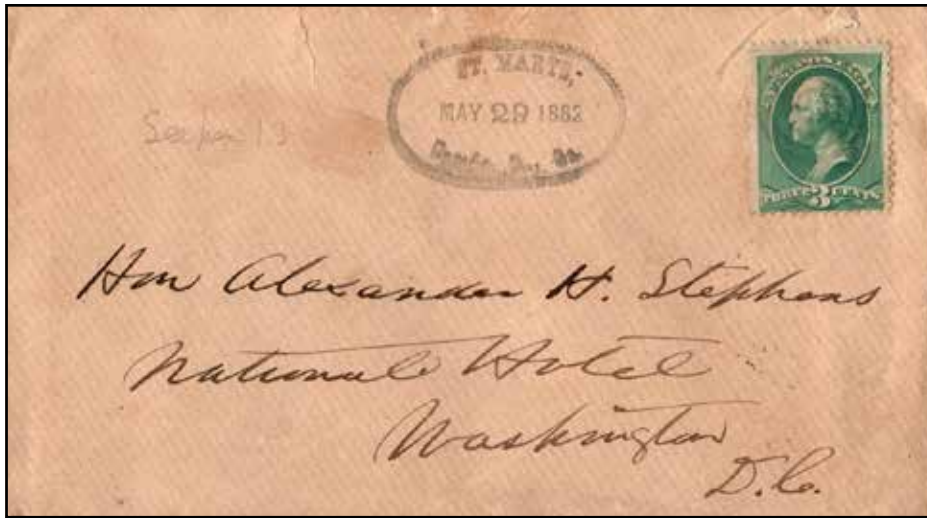 ST. MARYS,
MAY 29 1882
Camden, Ga.
U.S. POSTAGE
THREE 3 CENTS
Hon Alexander H. Stephens
National Hotel
Washington
D.C.